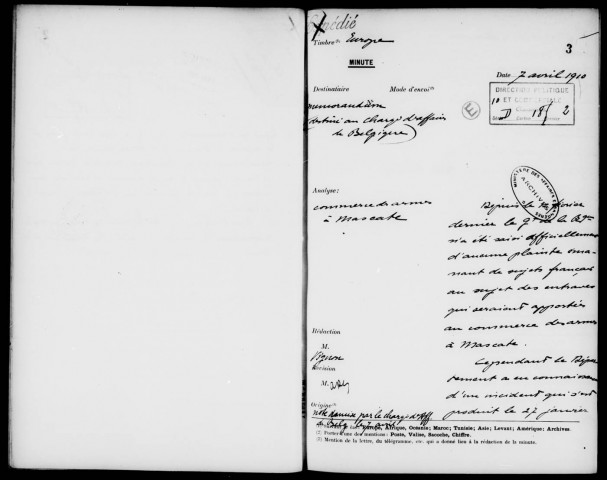 Expédié
Timbre Europe
3
MINUTE
Date 7 avril 1910
Destinataire Mode d'envoi
DIRECTION POLITIQUE
ET COMMERCIALE
D 18 2
E
memorandum
(destiné au chargé d'affaires
de Belgique)
MINISTERE DES AFFAIRES ETRANGERES
ARCHIVES
Analyse:
commerce des armes
à Mascate
Depuis le février
dernier le Gt de la Rque
n'a été saisi officiellement
d'aucune plainte éma-
nant de sujets français
au sujet des entraves
qui seraient apportées
au commerce des armes
à Mascate.
Cependant le Dépar
tement a eu connaissance
d'un incident qui s'est
produit le 27 janvier
Rédaction
M.
Révision
M.
Origine
note remise par le chargé d'aff
de Belg.
Afrique, Océanie; Maroc; Tunisie; Asie; Levant; Amérique; Archives
(2) Porter l'une des mentions: Poste, Valise, Sacoche, Chiffre.
(3) Mention de la lettre, du télégramme, etc. qui a donné lieu à la rédaction de la minute.